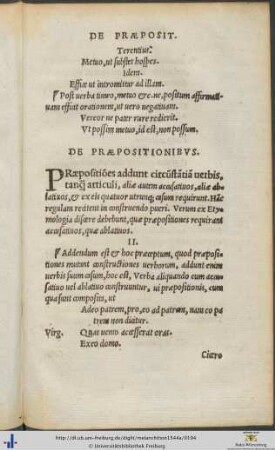 DE PRÆPOSIT.
Terentius.
Metuo, ut substet hospes.
Idem.
Effice ut intromittar ad illam.
¶ Post verba timeo, metuo &c. ne, positum affirmati-
uam efficit orationem, ut vero negatiuam.
Vereor ne pater rure redierit.
Vt possim metuo, id est, non possum.
DE PRÆPOSITIONIBVS.
PRæpositiões addunt circũstãtiã uerbis,
tanq̃ articuli, aliæ autem accusatiuos, aliæ abla-
tiuos, & ex eis quatuor utrunq; casum requirunt. Hãc
regulam teneant in construendo pueri. Verum ex Ety
mologia discere debebunt, quæ præpositiones requirant
accusatiuos, quæ ablatiuos.
II.
¶ Addendum est & hoc præceptum, quod præposi-
tiones mutent constructiones uerborum, addunt enim
uerbis suum casum, hoc est, Verba aliquando cum accu-
satiuo uel ablatiuo construuntur, ui præpositionis, cum
qua sunt composita, ut
Adeo patrem, pro, eo ad patrem, nam eo pa
trem non dicitur.
Virg. Quæ uento accesserat orat.
Exeo domo.
Cicero
http://dl.ub.uni-freiburg.de/diglit/melanchthon1544a/0194
© Universitätsbibliothek Freiburg